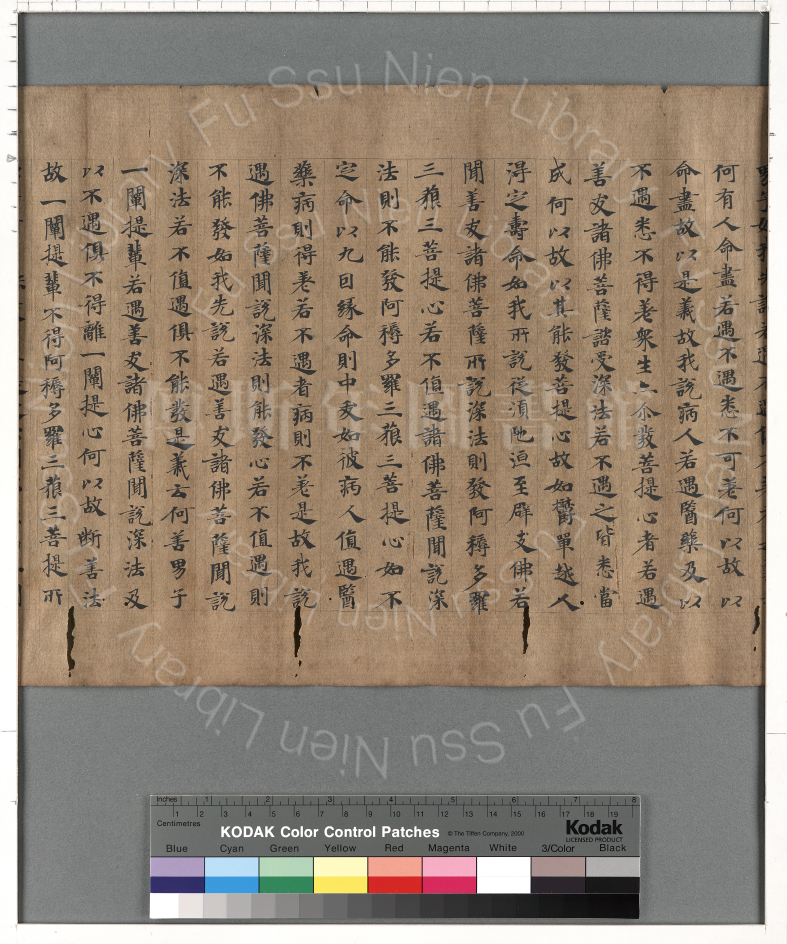 何有人命盡若遇不遇悉不可差何以故以
命盡故以是義故我說病人若遇醫藥及以
不遇悉不得差衆生亦尒發菩提心者若遇
善友諸佛菩薩諮受深法若不遇之皆悉當
成何以故以其能發菩提心故如鬱單越人
淂定壽命如我所說從須陁洹至辟支佛若
聞善友諸佛菩薩所說深法則發阿耨多羅
三藐三菩提心若不值遇諸佛菩薩聞說深
法則不能發阿耨多羅三藐三菩提心如不
定命以九因緣命則中夭如彼病人值遇醫
藥病則得差若不遇者病則不差是故我說
遇佛菩薩聞說深法則能發心若不值遇則
不能發如我先說若遇善友諸佛菩薩聞說
深法若不值遇俱不能發是義云何善男子
一闡提輩若遇善友諸佛菩薩聞說深法及
以不遇俱不得離一闡提心何以故斷善法
故一闡提輩不得阿耨多羅三藐三菩提所
Fu Ssu Nien Library
傅斯年圖書館
Inches 1 2 3 4 5 6 7 8
Centimetres 1 2 3 4 5 6 7 8 9 10 11 12 13 14 15 16 17 18 19
KODAK Color Control Patches © The Tiffen Company, 2000 Kodak
LICENSED PRODUCT
Blue Cyan Green Yellow Red Magenta White 3/Color Black